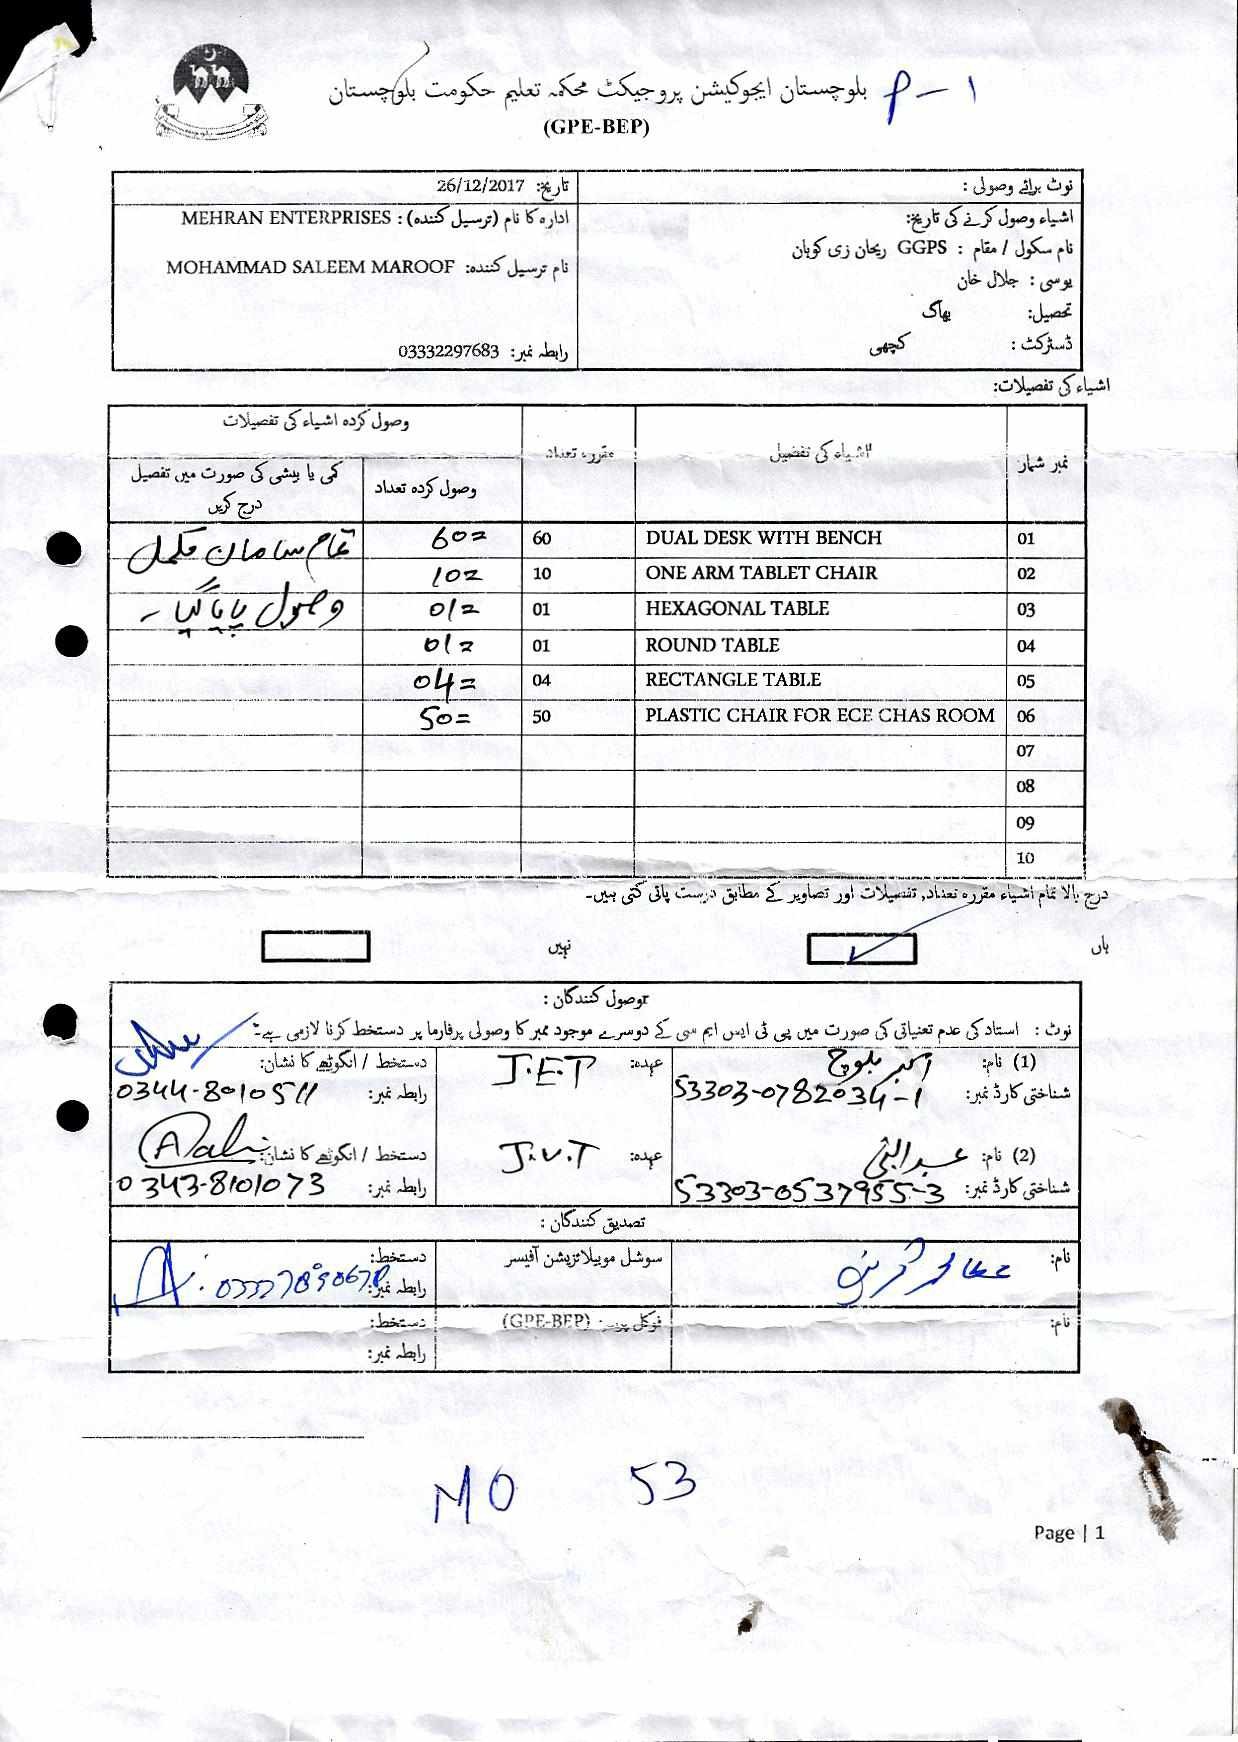 بلوچستان ایجوکیشن پروجیکٹ محکمہ تعلیم حکومت بلوچستان P-1
(GPE-BEP)
نوٹ برائے وصولی :
اشیاء وصول کرنے کی تاریخ:
نام سکول / مقام : GGPS ریحان زی کوہان
یوسی : جلال خان
تحصیل: بھاگ
ڈسٹرکٹ : کچھی
تاریخ: 26/12/2017
ادارہ کا نام (ترسیل کنندہ) : MEHRAN ENTERPRISES
نام ترسیل کنندہ: MOHAMMAD SALEEM MAROOF
رابطہ نمبر: 03332297683
اشیاء کی تفصیلات:
نمبر شمار اشیاء کی تفصیل مقررہ تعداد وصول کردہ اشیاء کی تفصیلات
وصول کردہ تعداد کمی یا بیشی کی صورت میں تفصیل درج کریں
01 DUAL DESK WITH BENCH 60 60= تمام سامان مکمل
02 ONE ARM TABLET CHAIR 10 10=
03 HEXAGONAL TABLE 01 01= وصول پایا گیا -
04 ROUND TABLE 01 01=
05 RECTANGLE TABLE 04 04=
06 PLASTIC CHAIR FOR ECE CHAS ROOM 50 50=
07
08
09
10
درج بالا تمام اشیاء مقررہ تعداد, تفصیلات اور تصاویر کے مطابق درست پائی گئی ہیں۔
ہاں نہیں
وصول کنندگان :
نوٹ : استاد کی عدم تعنیاتی کی صورت میں پی ٹی ایس ایم سی کے دوسرے موجود ممبر کا وصولی پرفارما پر دستخط کرنا لازمی ہے۔
(1) نام: اکبر بلوچ عہدہ: J.E.T دستخط / انگوٹھے کا نشان:
شناختی کارڈ نمبر: 53303-0782034-1 رابطہ نمبر: 0344-8010511
(2) نام: عبدالنبی عہدہ: J.V.T دستخط / انگوٹھے کا نشان:
شناختی کارڈ نمبر: 53303-0537955-3 رابطہ نمبر: 0343-8101073
تصدیق کنندگان :
نام: سوشل موبیلائزیشن آفیسر دستخط:
رابطہ نمبر:
نام: فوکل پرسن (GPE-BEP) دستخط:
رابطہ نمبر:
MO 53
Page | 1